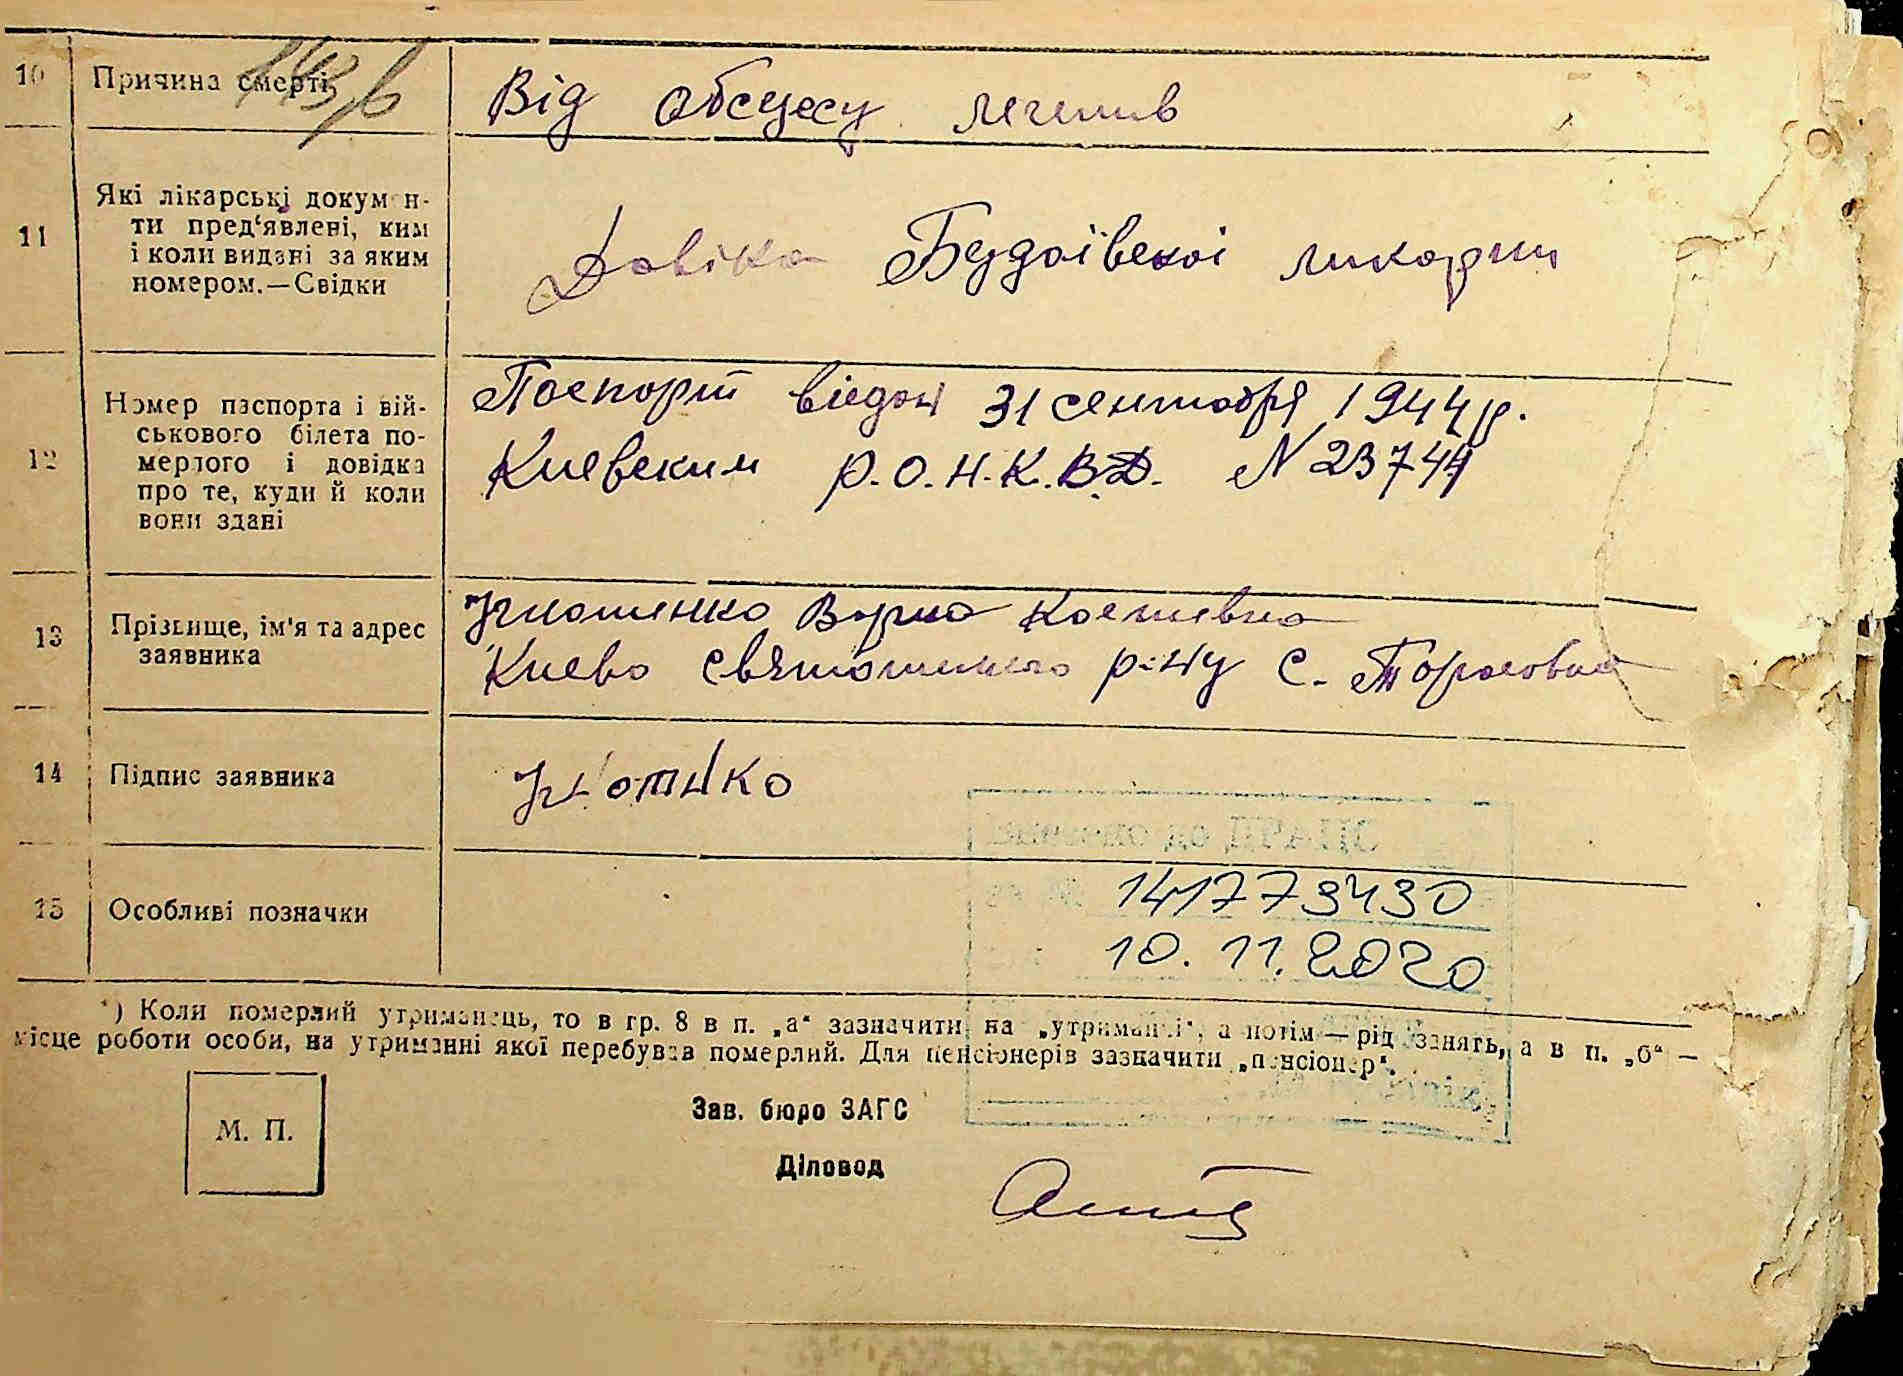 10 Причина смерті Від абсцесу легенив
11 Які лікарські докумен-
ти пред'явлені, ким
і коли видані за яким
номером.—Свідки
Довіка Бездоївскоі
12 Номер паспорта і вій-
ськового білета по-
мерлого і довідка
про те, куди й коли
вони здані
Паспорт віедан 31 сентября 1944 р.
Киевским р.О.Н.К.В.Д. N 23744
13 Прізвище, ім'я та адрес
заявника
Киево Святошинсго р-ну С. Торасовка
14 Підпис заявника
15 Особливі позначки
141773430
10.11.2020
*) Коли померлий утриманець, то в гр. 8 в п. „а“ зазначити на „утриманні“, а потім — рід занять, а в п. „б“ —
місце роботи особи, на утриманні якої перебував померлий. Для пенсіонерів зазначити „пенсіонер“.
М. П.
Зав. бюро ЗАГС
Діловод